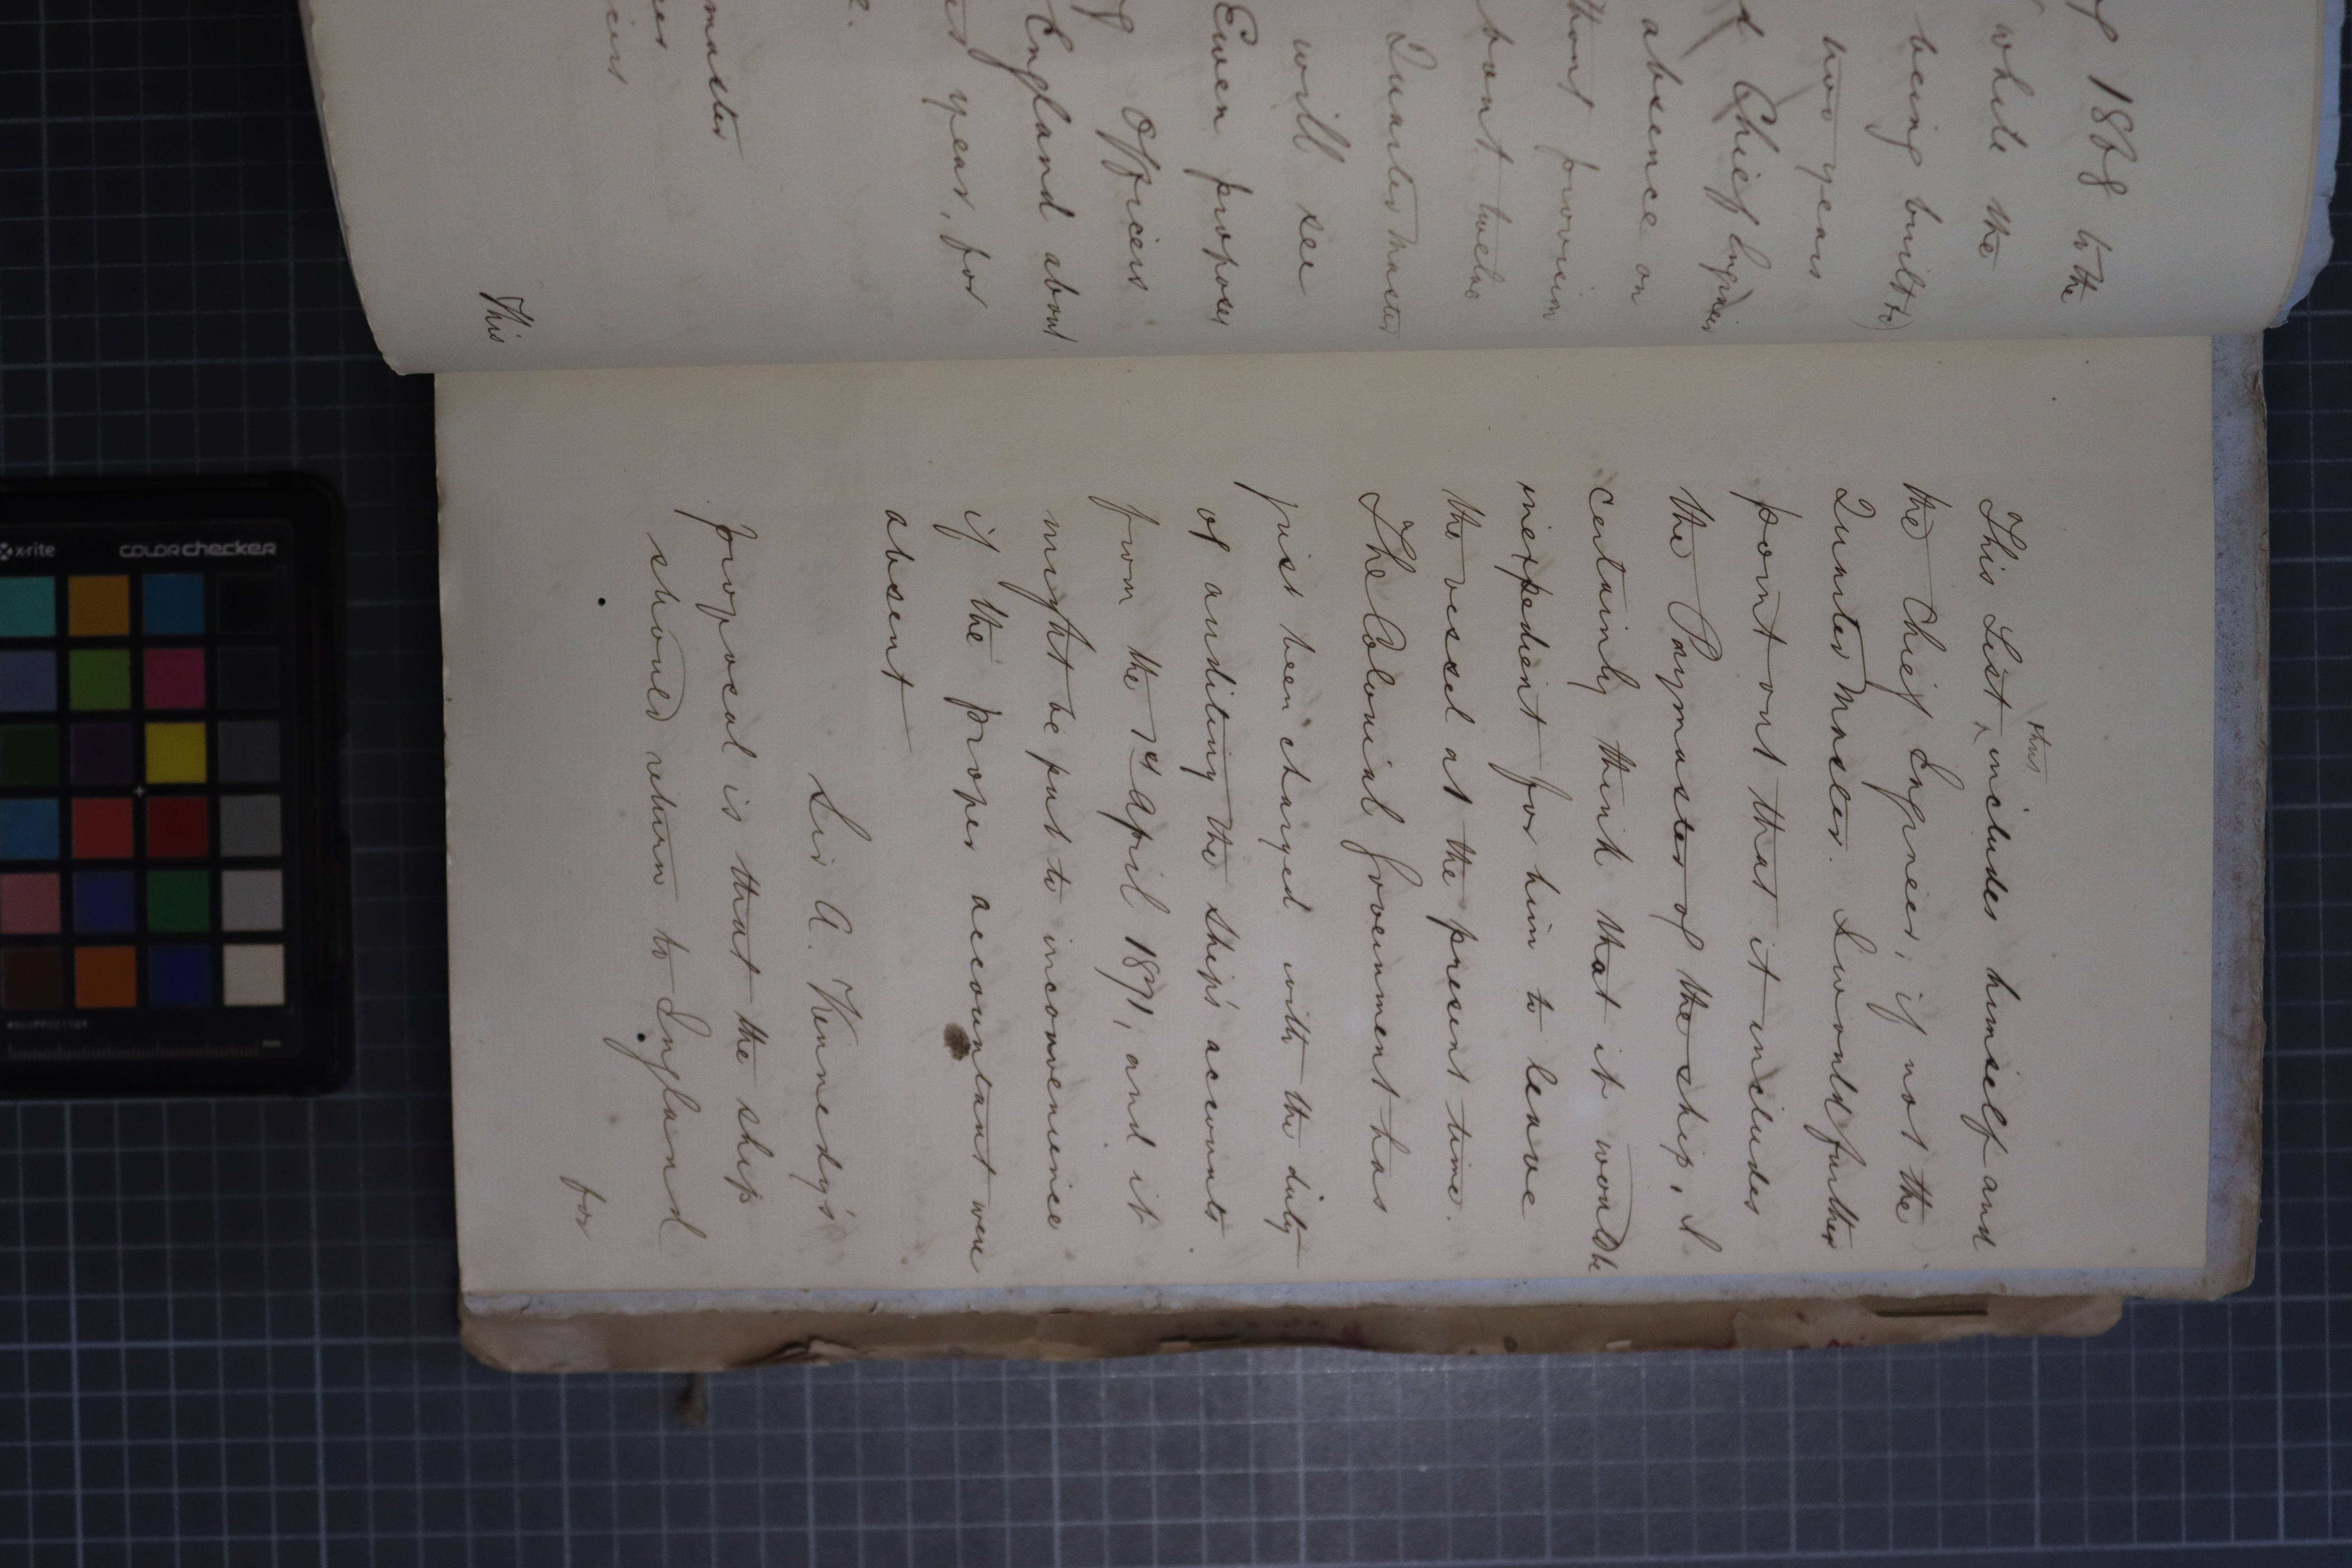 of 1868 to the
while the
being built to)
two years
Chief Engineer
absence on
provision
bout twelve
Quarter Master
will see
Ewen proposes
of Officers
England about
years, for
master
This
This List thus includes himself and
the Chief Engineer, if not the
Quarter Master. I would further
point out that it includes
the Paymaster of the ship, I
certainly think that it would be
inexpedient for him to leave
the vessel at the present time.
The Colonial Government has
just been charged with the duty
of auditing the ship's accounts
from the 1st April 1871, and it
might be put to inconvenience
if the proper accountant were
absent
Sir A. Kennedy's
proposal is that the ship
should return to England
for
x-rite
colorchecker